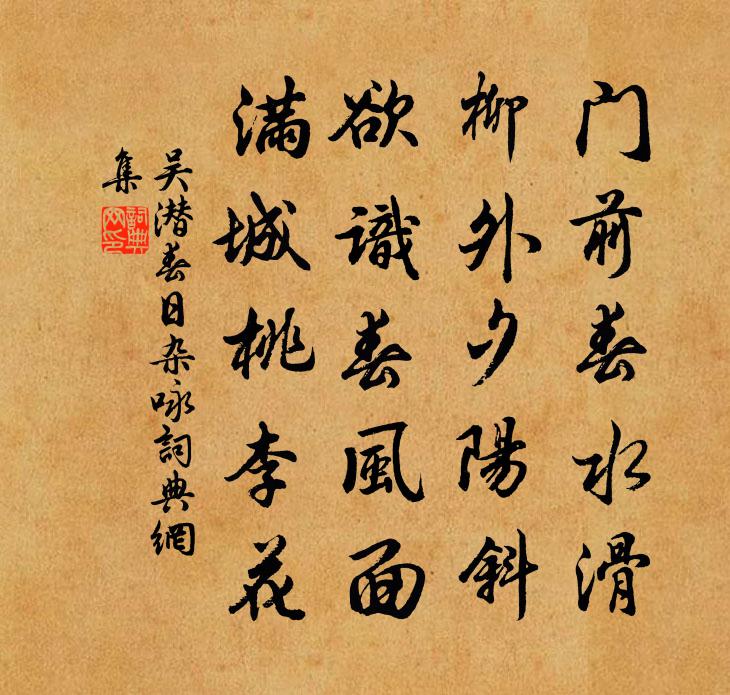 门前春水滑
柳外夕陽斜
欲識春風面
满城桃李花
吴潜春日杂咏詞典網
集
詞典
网印